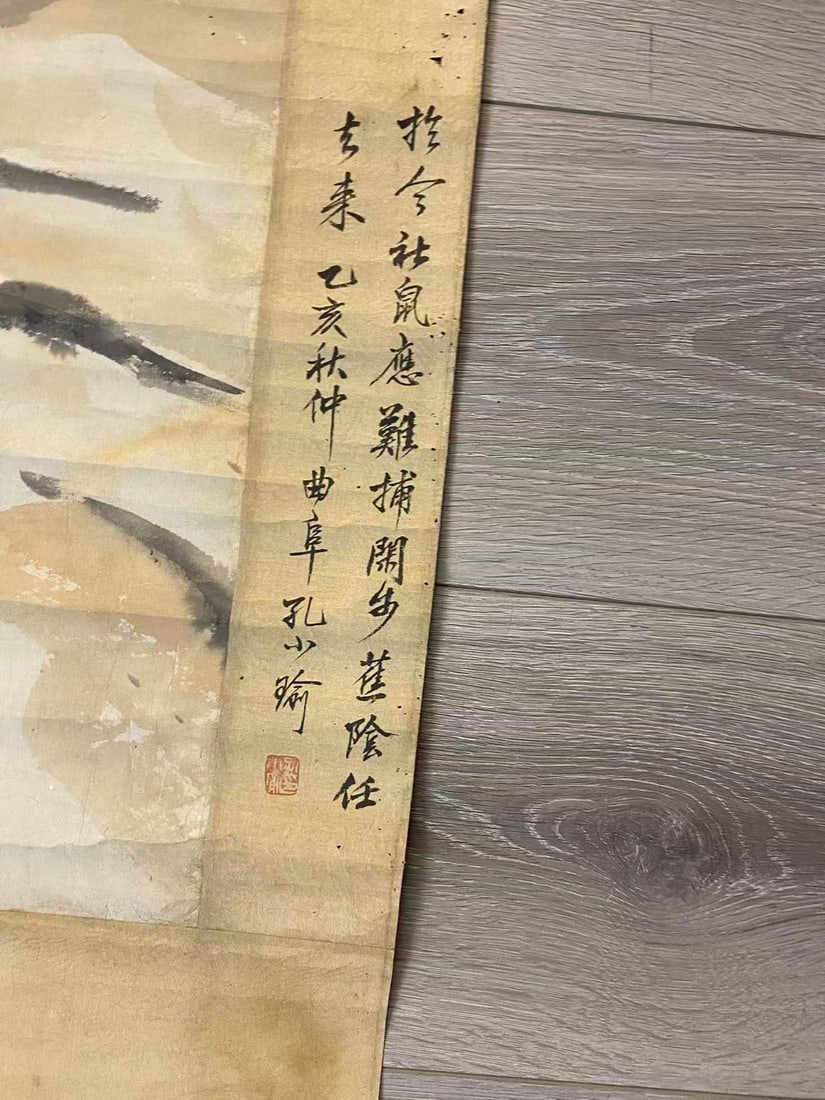 於今社鼠應難捕閑步蕉陰任
去來 乙亥秋仲 曲阜孔小瑜